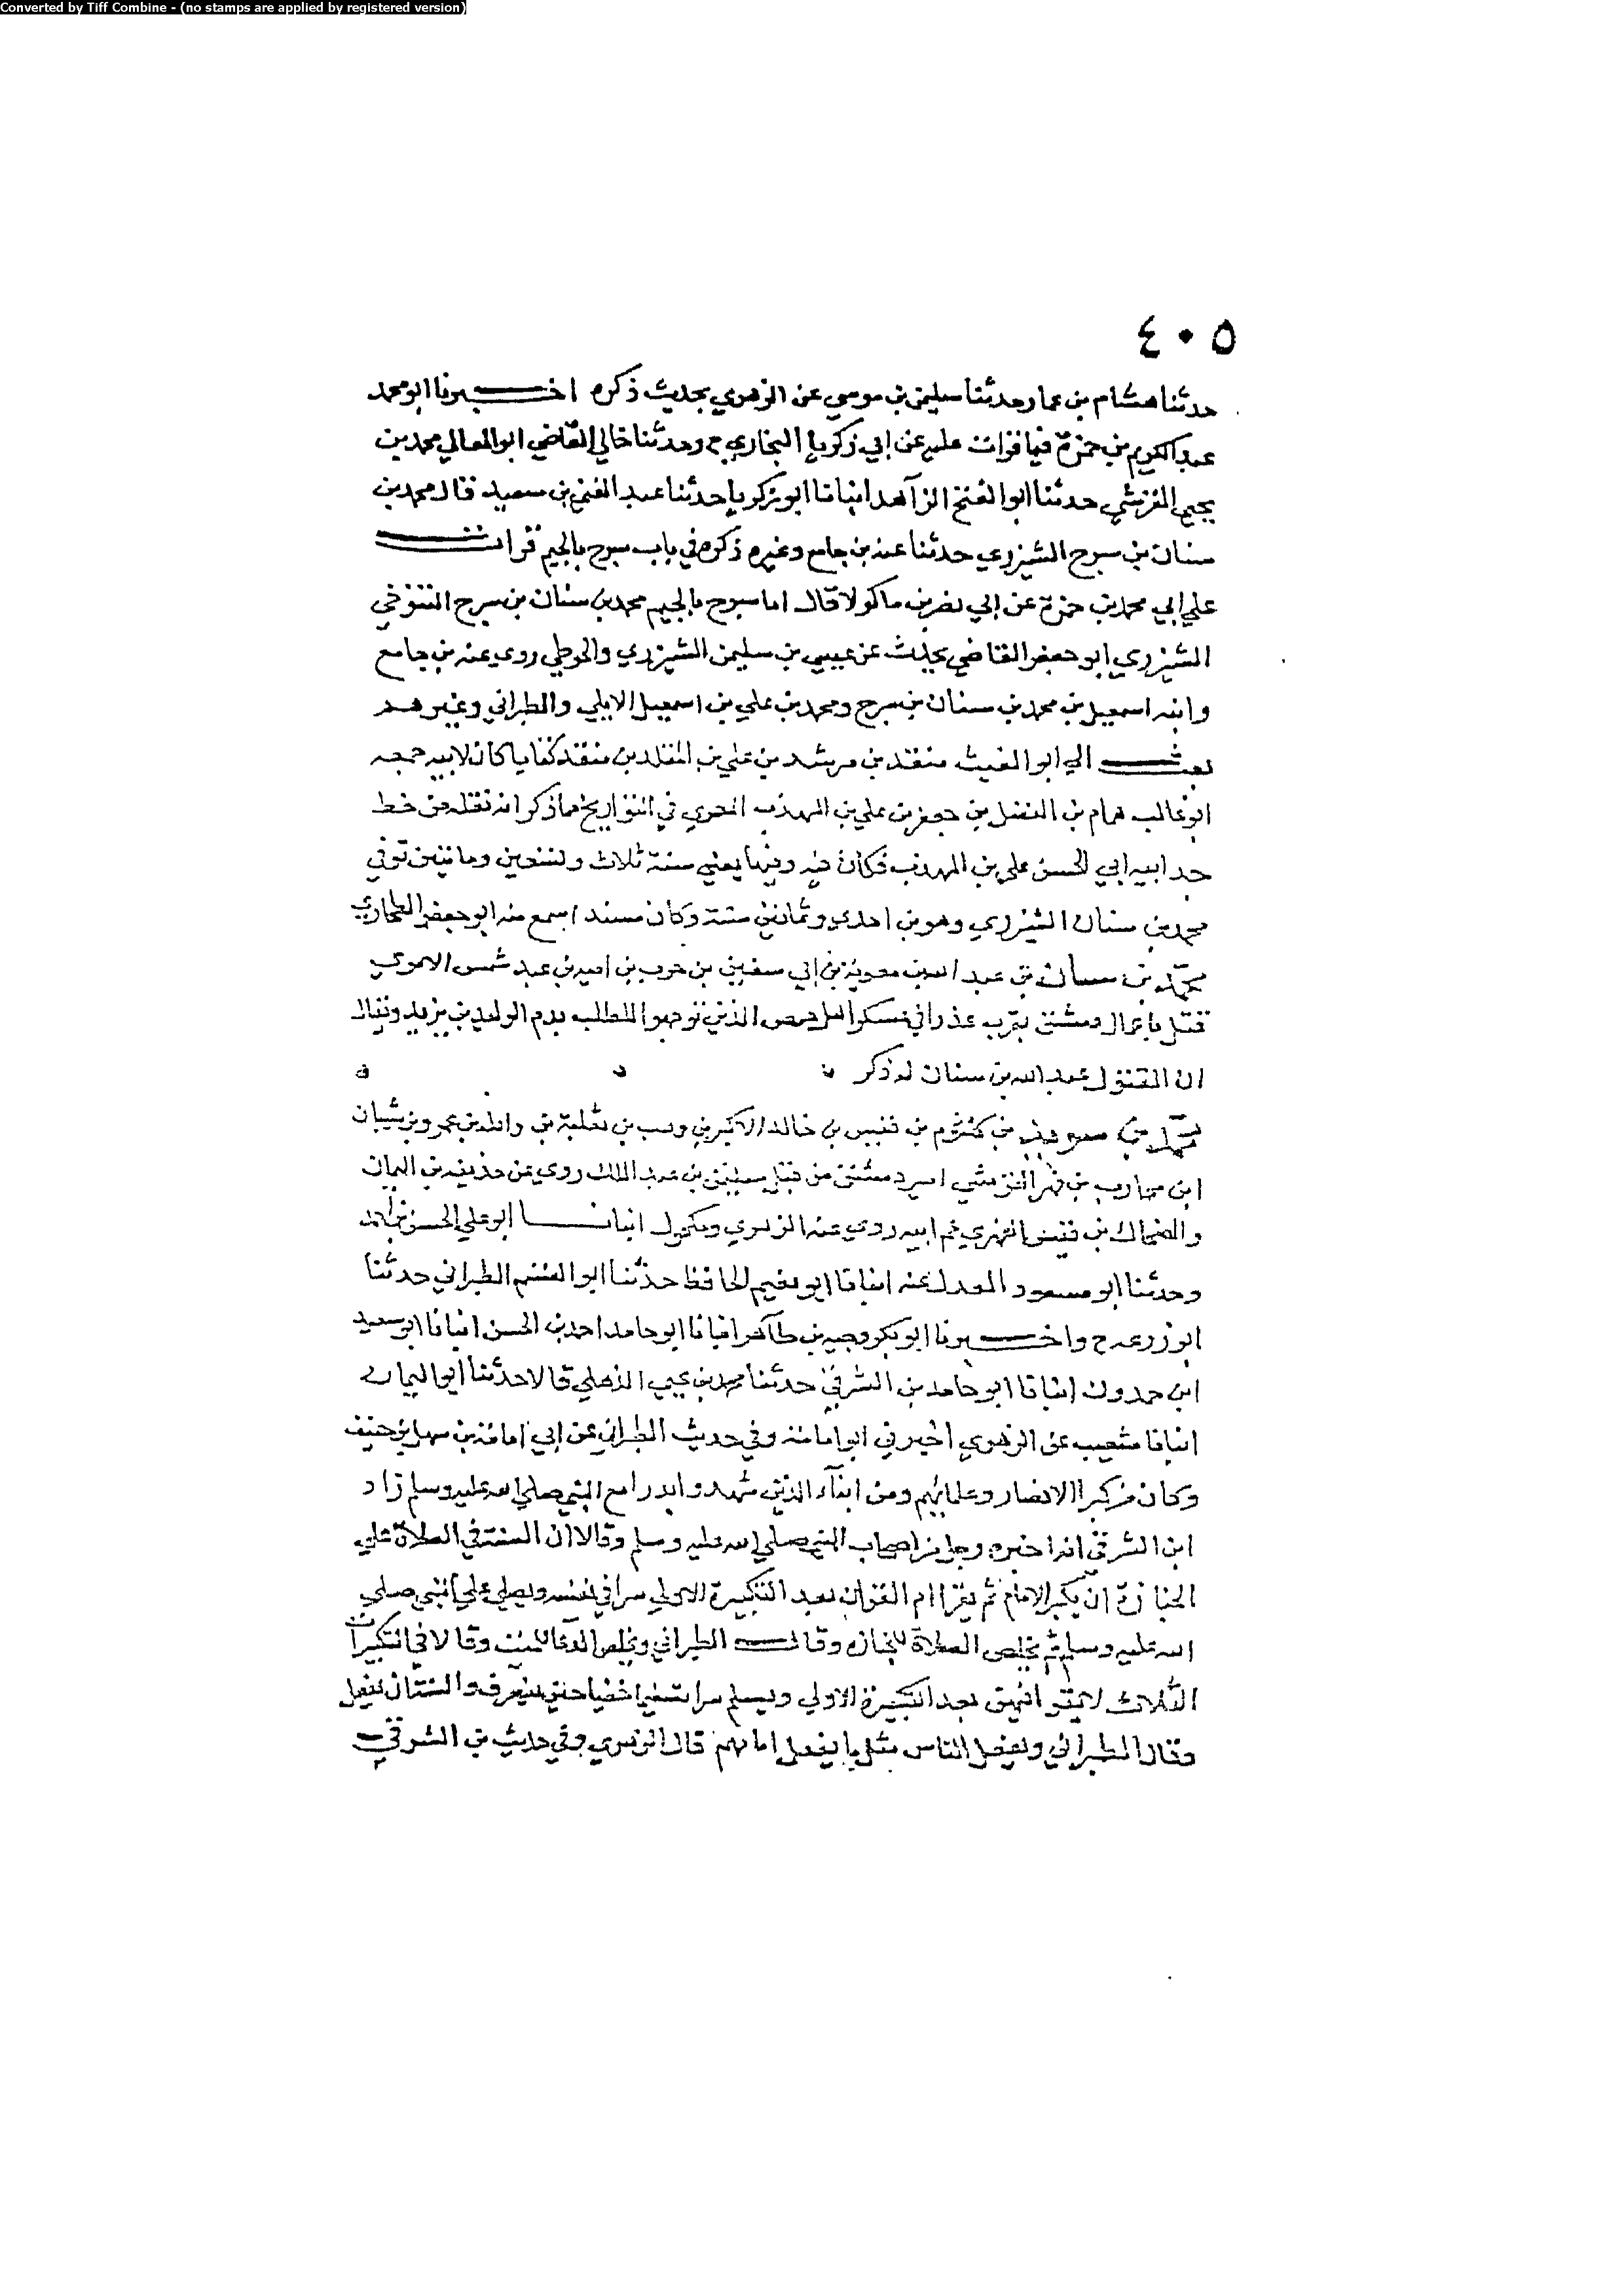 Converted by Tiff Combine - (no stamps are applied by registered version)
٤٠٥
حدثنا هشام بن عمار حدثنا سليمن بن موسي عن الزهري بحديث ذكره اخبرنا ابو محمد
عبد الكريم بن حمزة فيما قرات عليه عن ابي زكريا البخاري ح وحدثنا خالي القاضي ابو المعالي محمد بن
يحيي القرشي حدثنا ابو الفتح الزاهد انبانا ابو زكريا حدثنا عبد الغني بن سعيد قال محمد بن
سنان بن سرج الشيزري حدثنا عنه بن جامع وغيره ذكره في باب سرج بالجيم قرات
علي ابي محمد بن حمزة عن ابي نصر بن ماكولا قال اما سرج بالجيم محمد بن سنان بن سرج التنوخي
الشيزري ابو جعفر القاضي يحدث عن عيسي بن سليمن الشيزري والحوطي روي عنه بن جامع
وابنه اسمعيل بن محمد بن سنان بن سرج ومحمد بن علي بن اسمعيل الايلي والطبراني وغيرهم
بعث الي ابو المغيث منقذ بن مرشد بن علي بن المقلد بن منقذ كتابا كان لابيه جمعه
ابو غالب همام بن الفضل بن جعفر بن علي بن المهذب المعري في التواريخ مما ذكر انه نقله من خط
جد ابيه ابي الحسن علي بن المهذب فكان فيه وفيها يعني سنة ثلاث وتسعين وماتين توفي
محمد بن سنان الشيزري وهو بن احدي وثمانين سنة وكان مسندا سمع منه ابو جعفر الطحاوي
محمد بن سنان بن عبد الله بن معوية بن ابي سفين بن حرب بن امية بن عبد شمس الاموي
قتل باعمال دمشق بقرب عذرا في عسكر اهل حمص الذين توجهوا للطلب بدم الوليد بن يزيد ويقال
ان المقتول عبد الله بن سنان له ذكر
محمد بن سويد بن كلثوم بن قيس بن خالد الاكبر بن وهب بن ثعلبة بن واثلة بن عمرو بن شيبان
ابن محارب بن فهر القرشي امير دمشق من قبل سليمن بن عبد الملك روي عن حذيفة بن اليمان
والضحاك بن قيس الفهري عم ابيه روي عنه الزهري ومكحول انبانا ابو علي الحسن بن احمد
وحدثنا ابو مسعود المعدل عنه انبانا ابو نعيم الحافظ حدثنا ابو القسم الطبراني حدثنا
ابو زرعه ح واخبرنا ابو بكر وجيه بن طاهر انبانا ابو حامد احمد بن الحسن انبانا ابو سعيد
ابن حمدون انبانا ابو حامد بن الشرقي حدثنا محمد بن يحيي الذهلي قالا حدثنا ابو اليمان
انبانا شعيب عن الزهري اخبرني ابو امامة وفي حديث الطبراني عن ابي امامة بن سهل بن حنيف
وكان من كبرا الانصار وعلمائهم ومن ابناء الذين شهدوا بدرا مع النبي صلي الله عليه وسلم زاد
ابن الشرقي انه اخبره رجل من اصحاب النبي صلي الله عليه وسلم وقالا ان السنة في الصلاة علي
الجنازة ان يكبر الامام ثم يقرا ام القران بعد التكبيرة الاولي سرا في نفسه ويصلي علي النبي صلي
الله عليه وسلم ثم يخلص الصلاة للجنازة وقال الطبراني ويخلص الدعا للميت وقالا في التكبيرات
الثلاث لا يقرا فيهن بعد التكبيرة الاولي ويسلم سرا تسليما خفيا حين ينصرف والسنة ان يفعل
وقال الطبراني ويفعل الناس مثل ما يفعل امامهم قال الزهري وفي حديث بن الشرقي